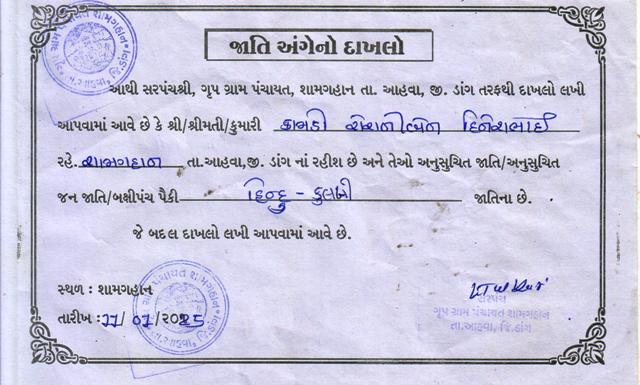 જાતિ અંગેનો દાખલો
આથી સરપંચશ્રી, ગૃપ ગ્રામ પંચાયત, શામગહાન તા. આહવા, જી. ડાંગ તરફથી દાખલો લખી
આપવામાં આવે છે કે શ્રી/શ્રીમતી/કુમારી કામડી રોશનીબેન દિનેશભાઈ
રહે. શામગહાન તા.આહવા,જી. ડાંગ નાં રહીશ છે અને તેઓ અનુસુચિત જાતિ/અનુસુચિત
જન જાતિ/બક્ષીપંચ પૈકી હિન્દુ - કુલબી જાતિના છે.
જે બદલ દાખલો લખી આપવામાં આવે છે.
સ્થળ : શામગહાન
તારીખ : 11/ 07 /2025
સરપંચ
ગૃપ ગ્રામ પંચાયત શામગહાન
તા.આહવા, જિ.ડાંગ